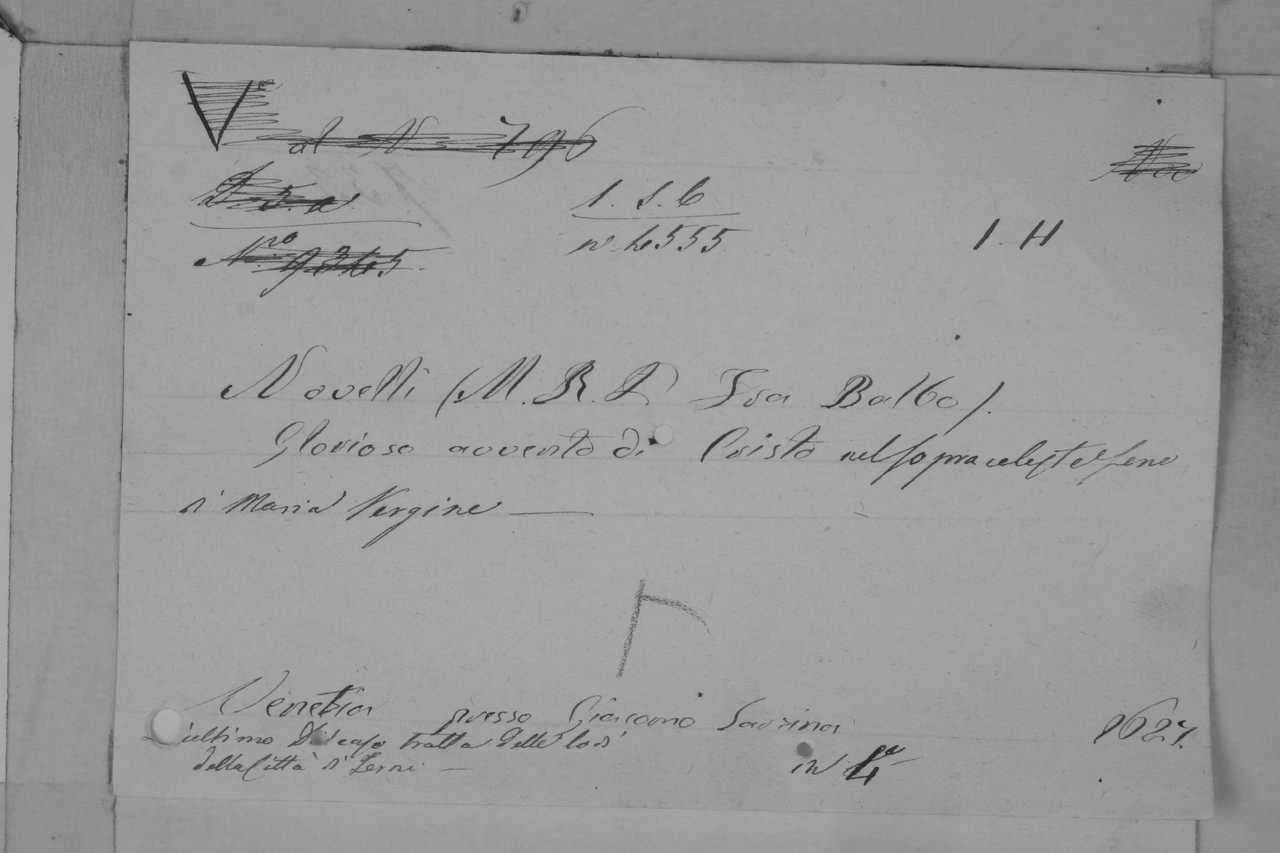 V al N 796
1. S. 6
Nro 9345
n. 4555
1 H
Novelli (M. R. P. Fra Balbo).
Glorioso avvento di Cristo nel sopraceleste seno
di Maria Vergine —
Venetia presso Giacomo Sarzina 1627.
l'ultimo discorso tratta delle lodi
della Città di Terni — in 4°